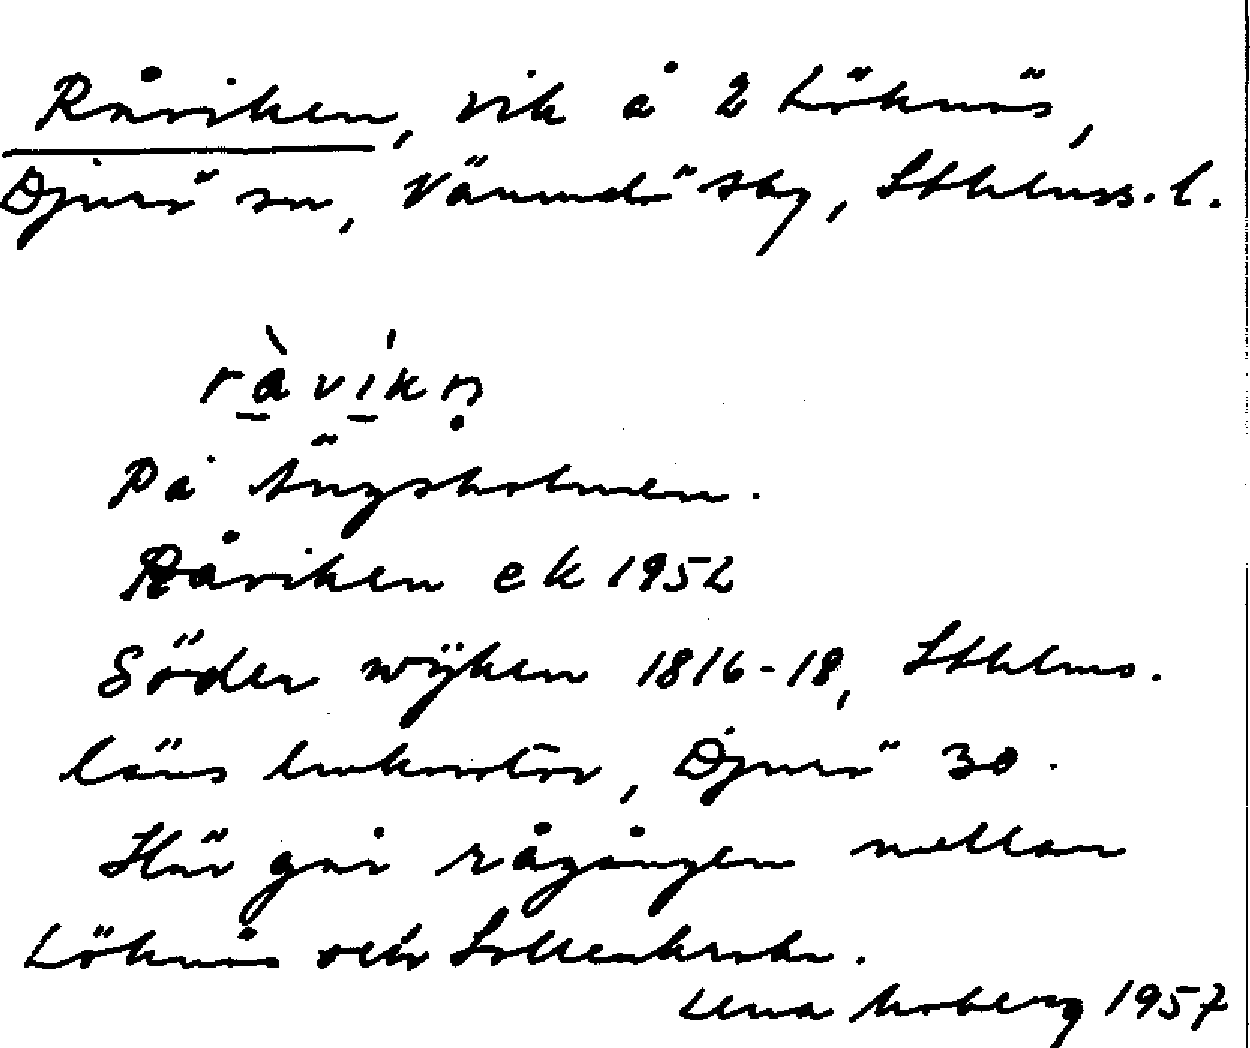 Råviken, vik å 2 Löknäs,
Djurö sn, Värmdö skg, Sthlms. l.
ràvíkn̥
På Ängsholmen.
Råviken ek 1952
Söder wÿken 1816-18, Sthlms.
läns kontor, Djurö 30.
Här går rågången mellan
Löknäs och Sollenkroka.
Lena Moberg 1957